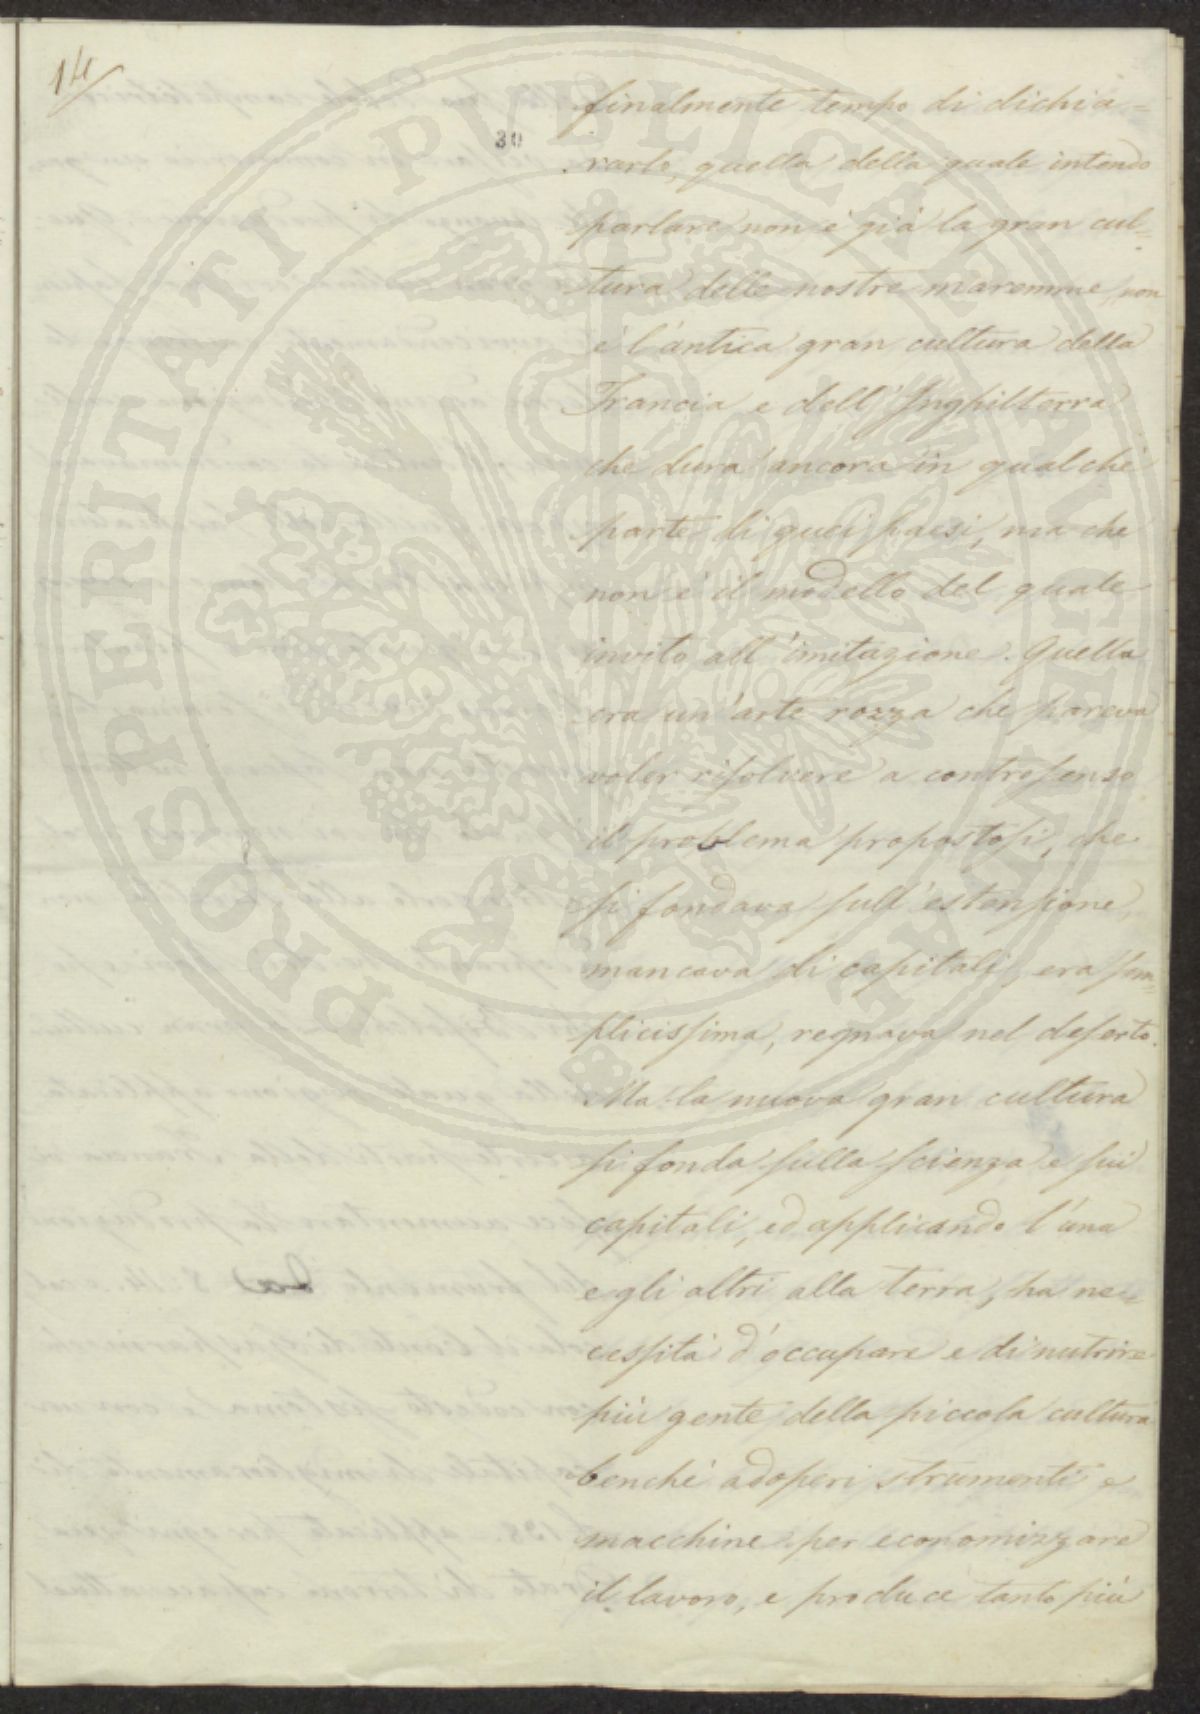 14
30
finalmente tempo di dichia=
rarlo, quella della quale intendo
parlare non è già la gran cul=
tura delle nostre maremme, non
è l'antica gran cultura della
Francia e dell'Inghilterra
che dura ancora in qualche
parte di quei paesi, ma che
non è il modello del quale
invito all'imitazione. Quella
era un'arte rozza che pareva
voler risolvere a controsenso
il problema propostosi, che
si fondava sull'estensione,
mancava di capitali, era sem=
plicissima, regnava nel deserto.
Ma la nuova gran cultura
si fonda sulla scienza e sui
capitali, ed applicando l'una
e gli altri alla terra, ha ne=
cessità d'occupare e di nutrire
più gente della piccola cultura
benché adoperi strumenti e
macchine per economizzare
il lavoro, e produce tanto più
PROSPERITATI PUBLICAE AUGENDAE